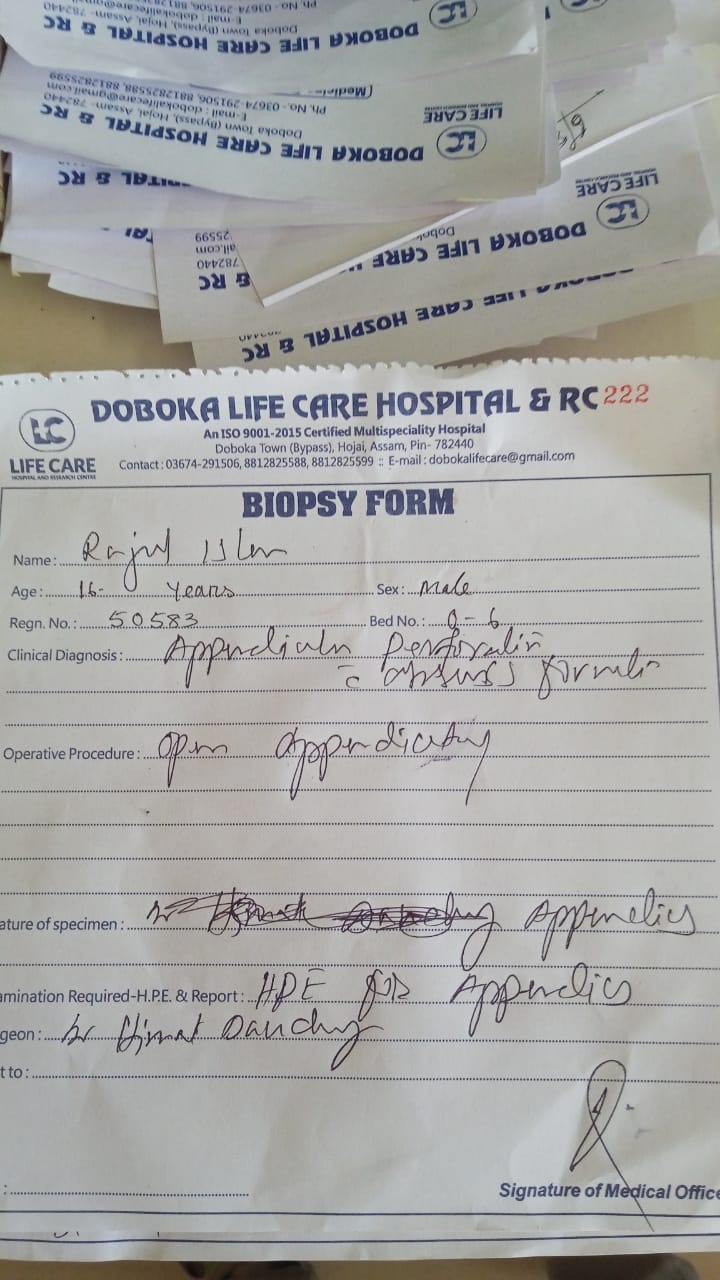 Ph. No.- 03674-291506, 88128
E-mail : dobokalifecare@gmail
Doboka Town (Bypass), Hojai, Assam- 782440
DOBOKA LIFE CARE HOSPITAL & RC
LC
(Medicine
Ph. No.- 03674-291506, 8812825588, 8812825599
E-mail : dobokalifecare@gmail.com
Doboka Town (Bypass), Hojai, Assam- 782440
DOBOKA LIFE CARE HOSPITAL & RC
LC
LIFE CARE
LIFE CARE
LC
DOBOKA LIFE CARE
25599
ail.com
782440
& RC
DOBOKA LIFE CARE HOSPITAL & RC
DOBOKA LIFE CARE HOSPITAL & RC 222
An ISO 9001-2015 Certified Multispeciality Hospital
Doboka Town (Bypass), Hojai, Assam, Pin- 782440
Contact : 03674-291506, 8812825588, 8812825599 :: E-mail : dobokalifecare@gmail.com
LC
LIFE CARE
HOSPITAL AND RESEARCH CENTRE
BIOPSY FORM
Name: Rajul Islam
Age: 16- years Sex: Male
Regn. No.: 50583 Bed No.: 6
Clinical Diagnosis: Perforation
Operative Procedure: open
ature of specimen: Appendics
amination Required-H.P.E. & Report: HPE for Appendics
geon: Dr
t to:
:
Signature of Medical Office